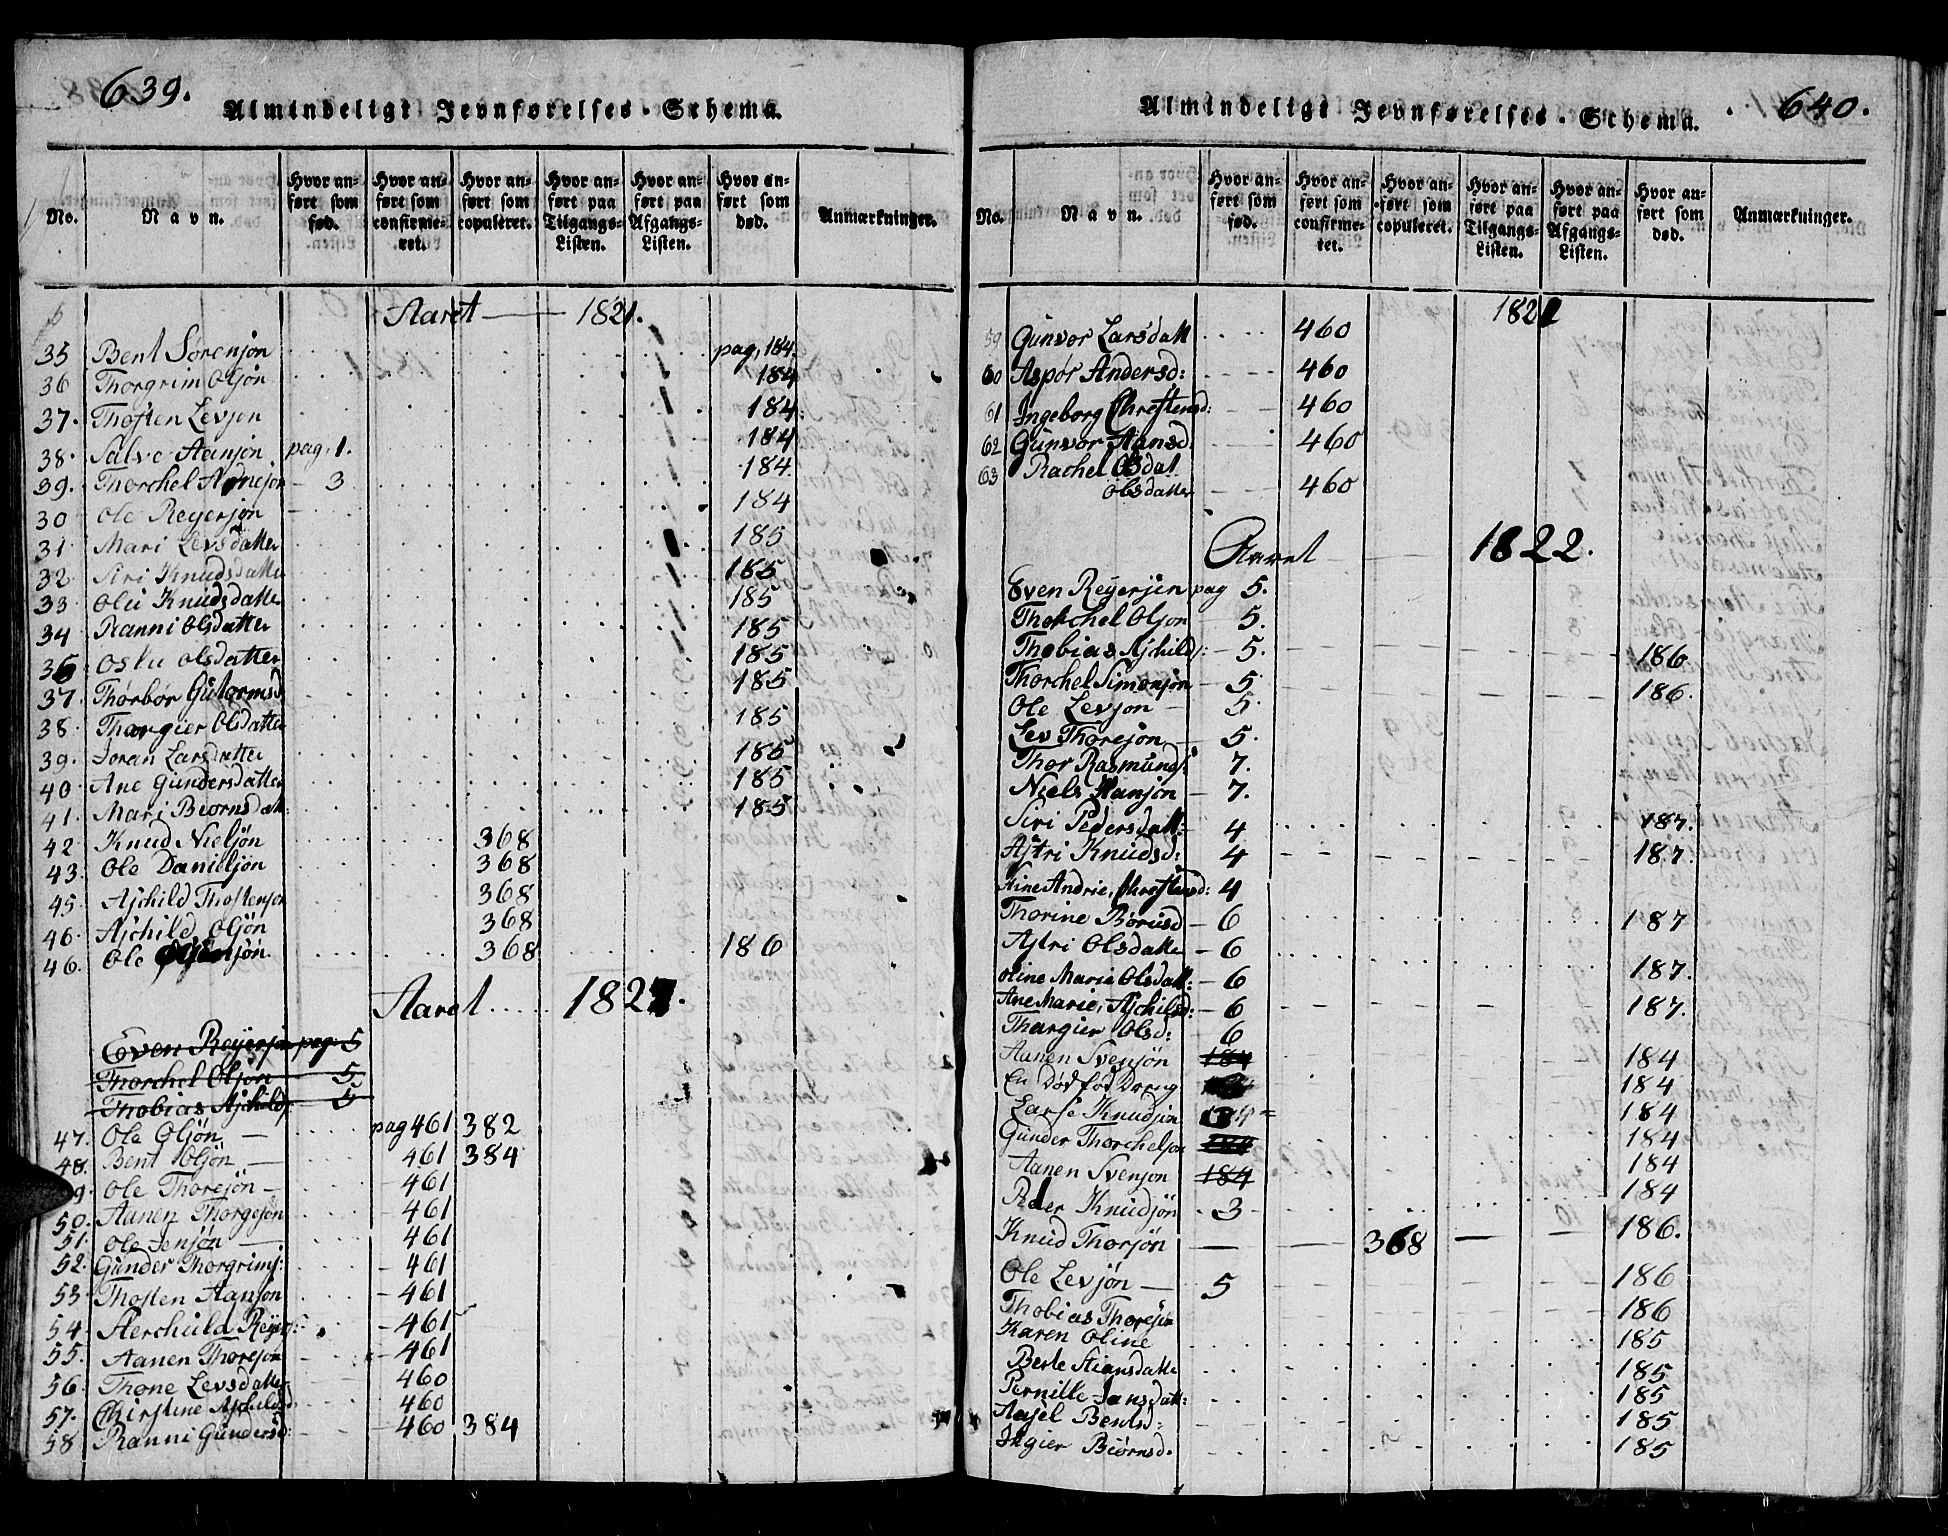 639.
Almindeligt Jevnførelses-Schema.
No. Navn. Hvor anført som fød. Hvor anført som confirmeret. Hvor anført som copuleret. Hvor anført paa Tilgangs-Listen. Hvor anført paa Afgangs-Listen. Hvor anført som død. Anmærkninger.
Aaret — 1821.
35 Bent Sørensøn pag. 184.
36 Thorgrim Olsøn 184
37. Thosten Levsøn 184.
38. Salve Aansøn pag. 1. 184
39. Thorchel Aanesøn 3 184.
30 Ole Reyersøn 184
31 Mari Levsdatter 185
32 Siri Knudsdatte 185
33 Olu Knudsdatter 185
34 Ranni Olsdatter 185
36 Oslu Olsdatter 185
37. Thorbør Gutormsd 185
38. Thorgier Olsdatter 185
39. Joran Larsdatter 185
40. Ane Gundersdatter 185
41. Mari Biørnsdatt: 185
42 Knud Nielsøn 368
43. Ole Danielsøn 368
45. Aschild Thostensøn 368
46. Aschild Olsøn 368
46. Ole Olsønsøn 368 186
Aaret ..... 1821.
Even Reyersøn pag: 5
Thorchel Olsøn 5
Thobias Aschilds: 5
47. Ole Olsøn — pag 461 382
48. Bent Olsøn — 461 384
49. Ole Thoresøn — 461
50. Aanen Thorgesøn 461
51. Ole Jensøn — 461
52. Gunder Thorgrims: 461
53. Thosten Aansøn 461
54. Aerchuld Reyers: 461
55. Aanen Thoresøn 461
56. Thone Levsdatter 460
57. Chirstine Aschildsd 460
58 Ranni Gundersd: 460 384
640.
Almindeligt Jevnførelses-Schema.
No. Navn. Hvor anført som fød. Hvor anført som confirmeret. Hvor anført som copuleret. Hvor anført paa Tilgangs-Listen. Hvor anført paa Afgangs-Listen. Hvor anført som død. Anmærkninger.
1821
59 Gunvor Larsdatt 460
60 Aspør Andersd: 460
61 Ingeborg Chrestensd: 460
62 Gunvor Aansd. 460
63 Rachel Osdat
Olsdatter 460
Aaret 1822.
Even Reyersøn pag 5.
Thorchel Olsøn 5.
Thobias Aschilds: 5. 186
Thorchel Simonsøn 5 186.
Ole Levsøn — 5.
Lev Thoresøn 5.
Thor Rasmunds: 7.
Niels Hansøn 7.
Siri Pedersdatt: 4 187.
Astri Knudsd: 4 187.
Stine Andrie, Chrestensd: 4
Thorine Børusd 6 187
Astri Olsdatte 6
Oline Marie Olsdatt: 6 187.
Ane Marie, Aschilsd: 6 187.
Thargier Olsd: 6
Aanen Svensøn 184 184
En dødfød Dreng 184
Larse Knudsøn 184 184
Gunder Thorchelsøn 184 184
Aanen Svensøn 184 184
Peder Knudsøn 3 184
Knud Thorsøn — 368 — 186.
Ole Levsøn — 5 186
Thobias Thoresøn 186
Karen Oline 185
Berte Stiansdatte 185
Pernille Jansdatt: 185
Aasel Bentsd: 185
Ingier Biørnsd. 185